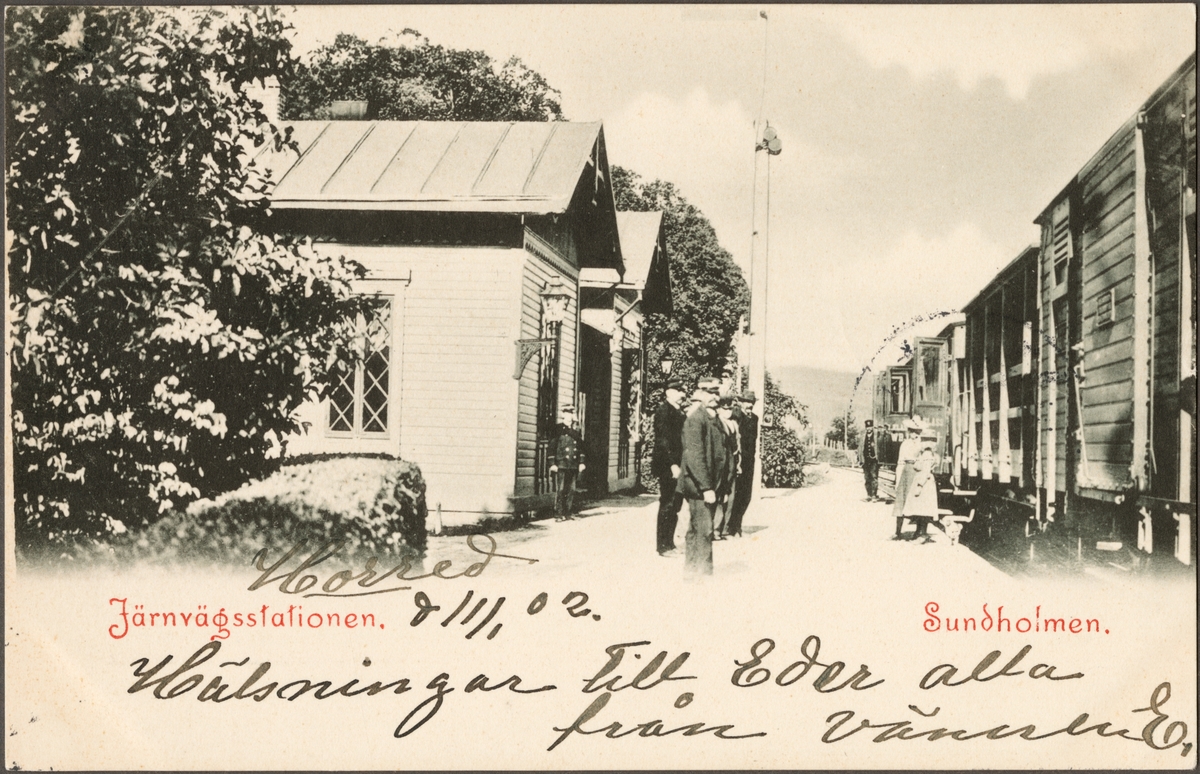 Horred
Järnvägsstationen. d 11/1, 02. Sundholmen.
Hälsningar till Eder alla
från E.